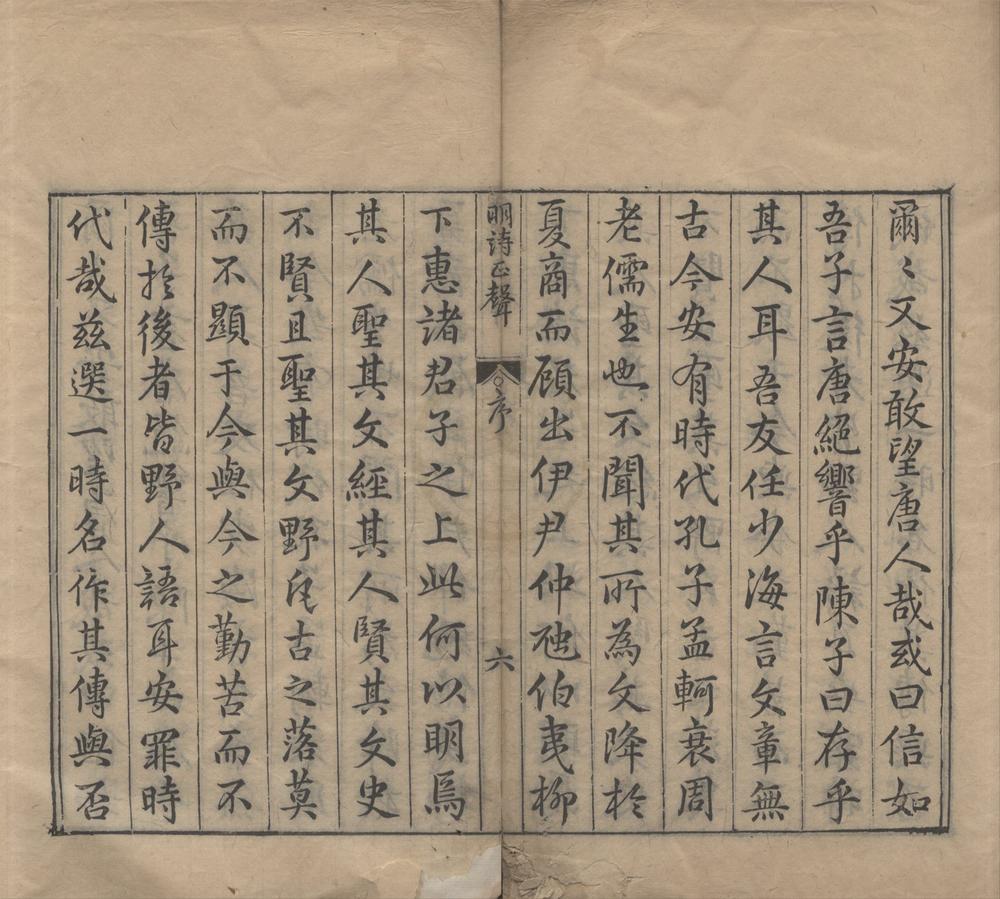 爾〻又安敢望唐人哉或曰信如
吾子言唐絕響乎陳子曰存乎
其人耳吾友任少海言文章無
古今安有時代孔子孟軻衰周
老儒生也不聞其所為文降於
夏商而顧出伊尹仲虺伯夷柳
明詩正聲 序 六
下惠諸君子之上此何以明焉
其人聖其文經其人賢其文史
不賢且聖其文野凡古之落莫
而不顯于今與今之勤苦而不
傳於後者皆野人語耳安罪時
代哉茲選一時名作其傳與否